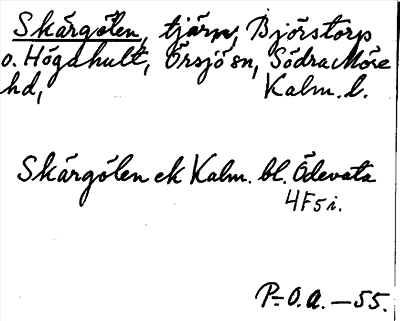 Skärgölen, tjärn, Björstorp
o. Högahult, Örsjö sn, Södra Möre
hd, Kalm. l.
Skärgölen ek Kalm. bl. Ödevata
4F5i.
P-O.A. - 55.